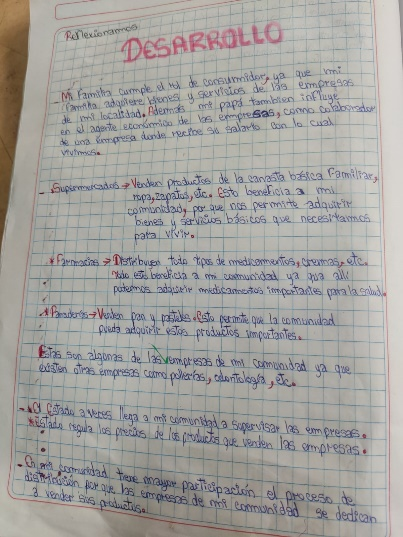 Reflexionamos
DESARROLLO
Mi familia cumple el rol de consumidor, ya que mi
familia adquiere bienes y servicios de las empresas
de mi localidad. Además mi papá tambien influye
en el agente económico de las empresas, como colaborador
de una empresa donde recibe su salario con lo cual
vivimos.
- Supermercados → Venden productos de la canasta básica familiar,
ropa, zapatos, etc. Esto beneficia a mi
comunidad, por que nos permite adquirir
bienes y servicios básicos que necesitamos
para vivir.
* Farmacias → Distribuyen todo tipos de medicamentos, cremas, etc.
Todo esto beneficia a mi comunidad ya que allí
podemos adquirir medicamentos importantes para la salud.
* Panaderías → Venden pan y pasteles. Esto permite que la comunidad
pueda adquirir estos productos importantes.
Estas son algunas de las empresas de mi comunidad ya que
existen otras empresas como pollerías, odontología, etc.
- * El Estado a veces llega a mi comunidad a supervisar las empresas.
* Estado regula los precios de los productos que venden las empresas.
- En mi comunidad tiene mayor participación el proceso de
distribución por que las empresas de mi comunidad se dedican
a vender sus productos.